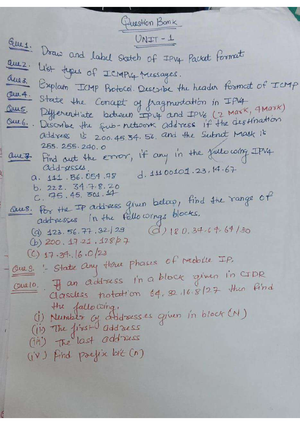 Question Bank
UNIT - 1
Que 1. Draw and label Sketch of IPV4 Packet format
Que 2. List types of ICMPV4 Messages.
Que 3. Explain ICMP Protocol. Describe the header format of ICMP
Que 4. State the Concept of fragmentation in IPV4.
Que 5. Differentiate between IPV4 and IPV6 (2 Mark, 4Mark)
Que 6. Describe the Sub-network address if the destination
address is 200.45.34.56 and the Subnet Mask is
255.255.240.0
Que 7. Find out the error, if any in the following IPV4
addresses
a. 111.56.034.78 d. 11100101.23.14.67
b. 221.34.7.8.20
c. 75.45.301.14
Que 8. For the IP address given below, Find the range of
addresses in the followings blocks.
(a) 123.56.77.32/29 (d) 180.34.64.64/30
(b) 200.17.21.128/27
(c) 17.34.16.0/23
Que 9 :- State any three phases of Mobile IP.
Que 10. If an address in a block given in CIDR
classless notation 34.32.16.8/27 then find
the following.
(i) Number of addresses given in block (N)
(ii) The first address
(iii) The last address
(iv) find prefix bit (n)